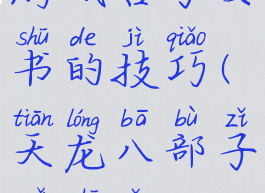 shū de jì qiǎo
书的技巧(
tiān lóng bā bù zǐ
天龙八部子